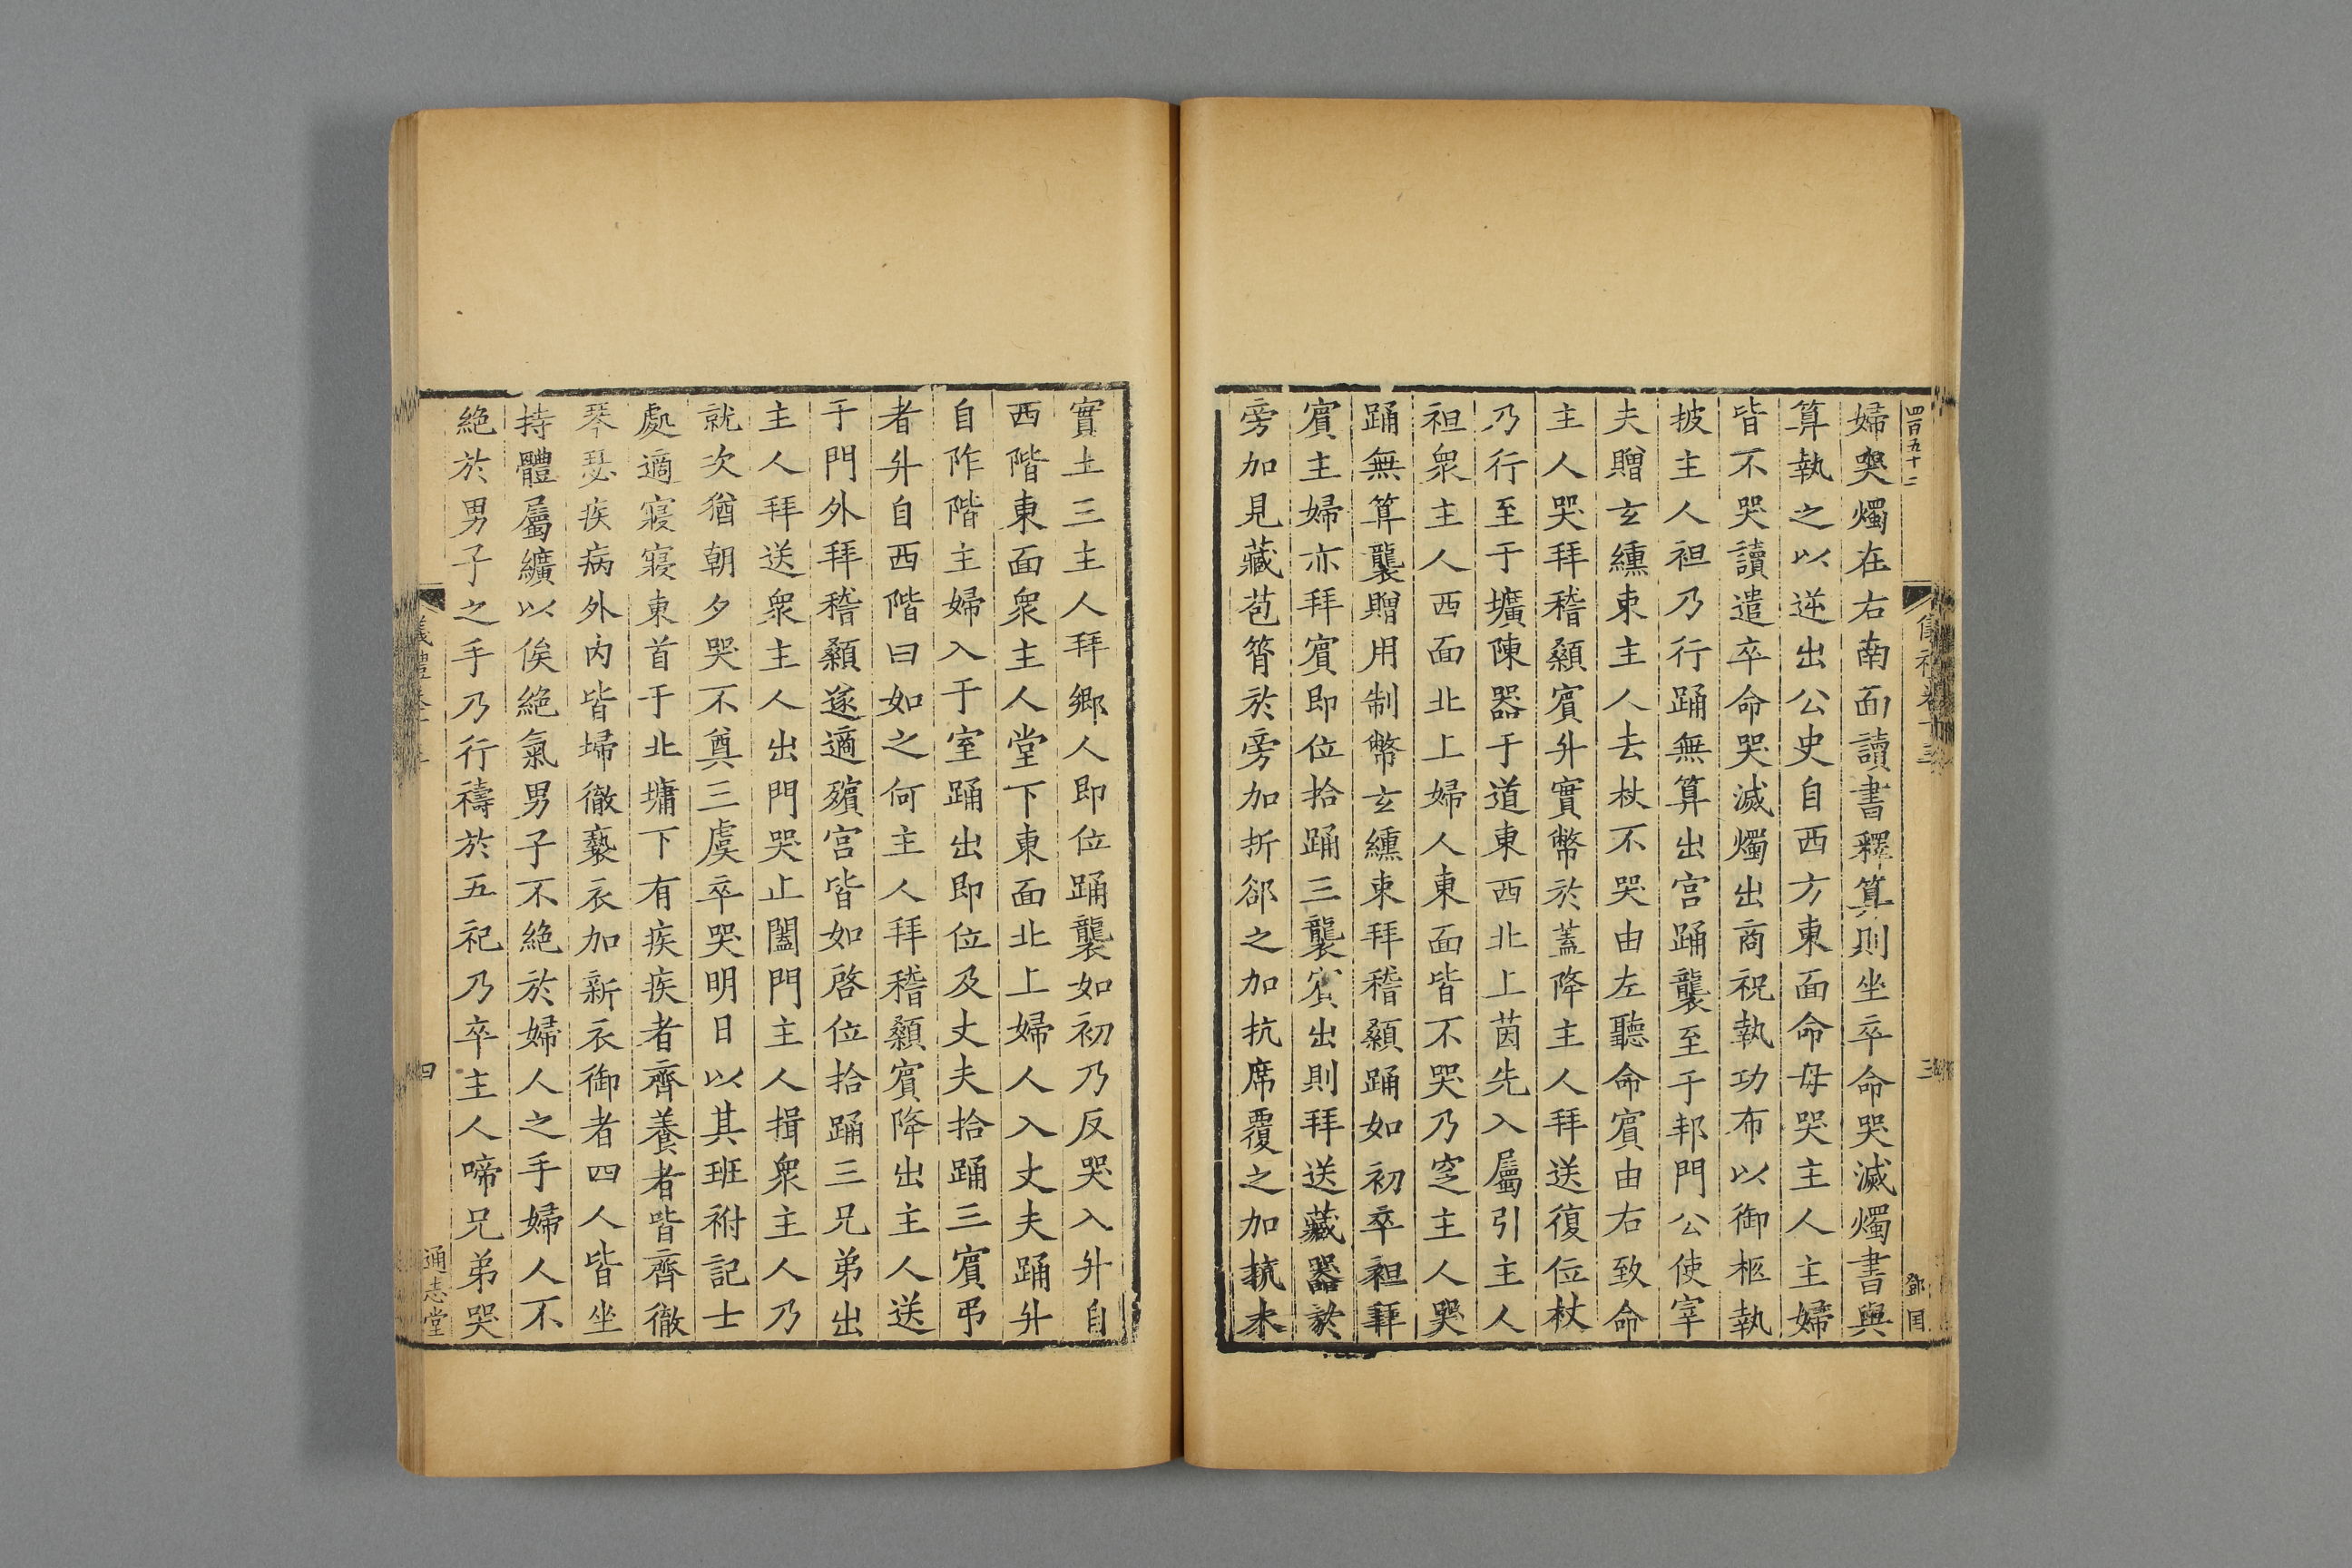 四百五十二
儀禮卷十三
三
鄧国
婦哭燭在右南面讀書釋算則坐卒命哭滅燭書與
算執之以逆出公史自西方東面命毋哭主人主婦
皆不哭讀遣卒命哭滅燭出商祝執功布以御柩執
披主人袒乃行踊無算出宮踊襲至于邦門公使宰
夫贈玄纁束主人去杖不哭由左聽命賓由右致命
主人哭拜稽顙賓升實幣於蓋降主人拜送復位杖
乃行至于壙陳器于道東西北上茵先入屬引主人
袒衆主人西面北上婦人東面皆不哭乃窆主人哭
踊無算襲贈用制幣玄纁束拜稽顙踊如初卒袒拜
賓主婦亦拜賓即位拾踊三襲賓出則拜送藏器於
旁加見藏苞筲於旁加折郤之加抗席覆之加抗木
實土三主人拜鄉人即位踊襲如初乃反哭入升自
西階東面衆主人堂下東面北上婦人入丈夫踊升
自阼階主婦入于室踊出即位及丈夫拾踊三賓弔
者升自西階曰如之何主人拜稽顙賓降出主人送
于門外拜稽顙遂適殯宮皆如啓位拾踊三兄弟出
主人拜送衆主人出門哭止闔門主人揖衆主人乃
就次猶朝夕哭不奠三虞卒哭明日以其班祔記士
處適寢寢東首于北墉下有疾疾者齊養者皆齊徹
琴瑟疾病外內皆埽徹褻衣加新衣御者四人皆坐
持體屬纊以俟絕氣男子不絕於婦人之手婦人不
絕於男子之手乃行禱於五祀乃卒主人啼兄弟哭
儀禮卷十三
四
通志堂